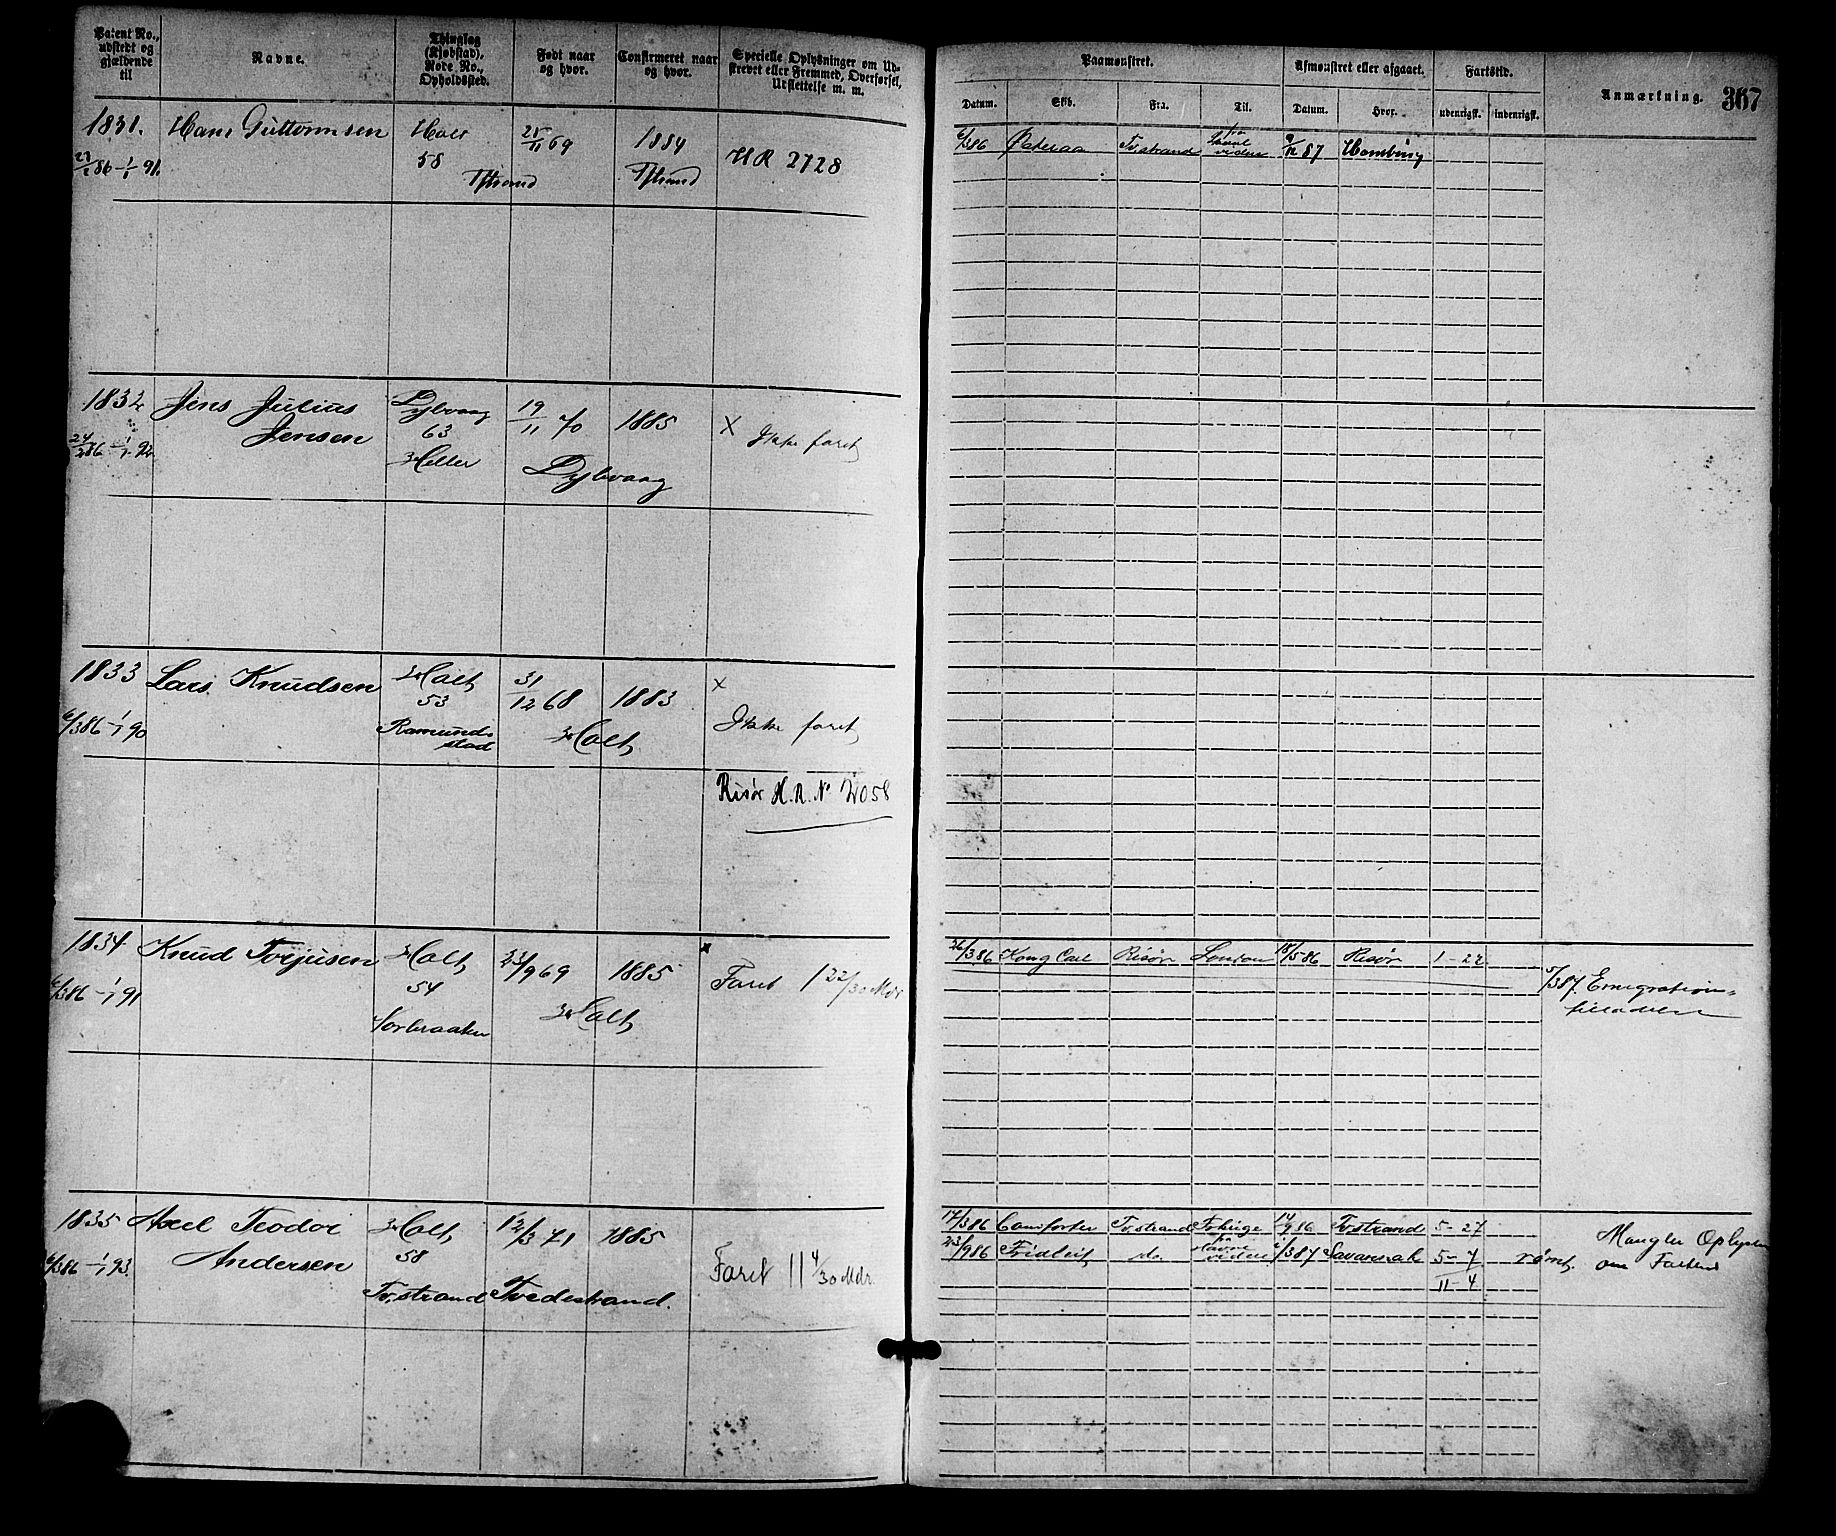 Patent No., udstedt og gjældende til
Navne.
Thinglag (Kjøbstad), Rode No., Opholdssted.
Født naar og hvor.
Confirmeret naar og hvor.
Specielle Oplysninger om Udskrevet eller Fremmed, Overførsel, Udslettelse m. m.
Paamønstret.
Afmønstret eller afgaaet.
Fartstid.
Anmærkning.
367
Datum.
Skib.
Fra.
Til.
Datum.
Hvor.
udenrigsk.
indenrigsk.
1831.
Hans Guttormsen
Holt
58
Tvstrand
25/11 69
1884
Tvstrand
HR 2728
6/3 86
Østeraa
Tvstrand
videre
9/12 87
Hamburg
1832
Jens Julius
Jensen
24/2 86 - 1/1 92
Dybvaag
63
19/11 70
1885
Dybvaag
X Ikke faret
1833
Lars Knudsen
6/3 86 - 1/1 90
Holt
53
Ramunds
stad
31/12 68
1883
Holt
X
Ikke faret
Risør H.R. No 2058
1834
Knud Torjusen
6/3 86 - 1/1 91
Holt
54
23/9 69
1885
Holt
Faret 1 22/30 Mdr
26/3 86
Kong Carl
Risør
London
18/5 86
Risør
1 - 22
5/3 87. Emigrations-
tilladelse
1835
Axel Teodor
Andersen
6/3 86 - 1/1 93.
Holt
58
Tvstrand
12/3 71
1885
Tvedestrand.
Faret 11 4/30 Mdr.
17/3 86
Comforter
Tvstrand
14/9 86
Tvstrand
5 - 27
23/9 86
Fridleif
do.
videre
/3 87
Savannah
5 - 7
rømt.
11 - 4
Mangler Oplysn
om Farten